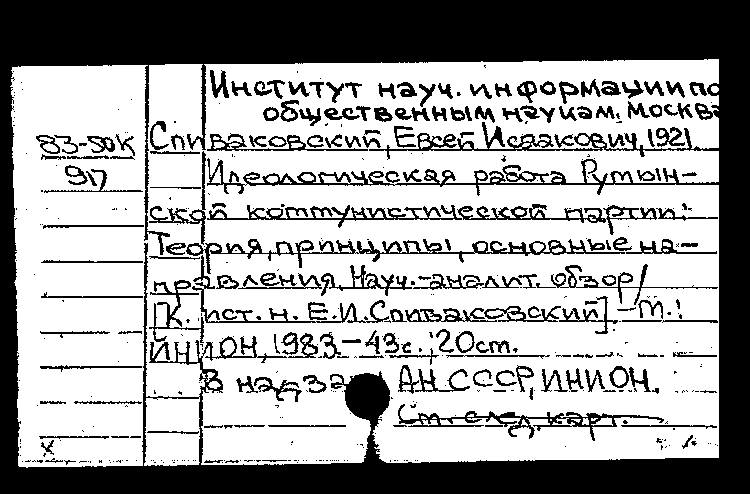 Институт науч. информации по
общественным наукам. Москва
83-50К Спиваковский, Евсей Исаакович, 1921
917 Идеологическая работа Румын-
ской коммунистической партии:
Теория, принципы, основные на-
правления. Науч.-аналит. обзор /
[К. ист. н. Е.И. Спиваковский]. - М.:
ИНИОН, 1983. - 43с.; 20 см.
В надзаг. АН СССР, ИНИОН.
См. след. карт.
x